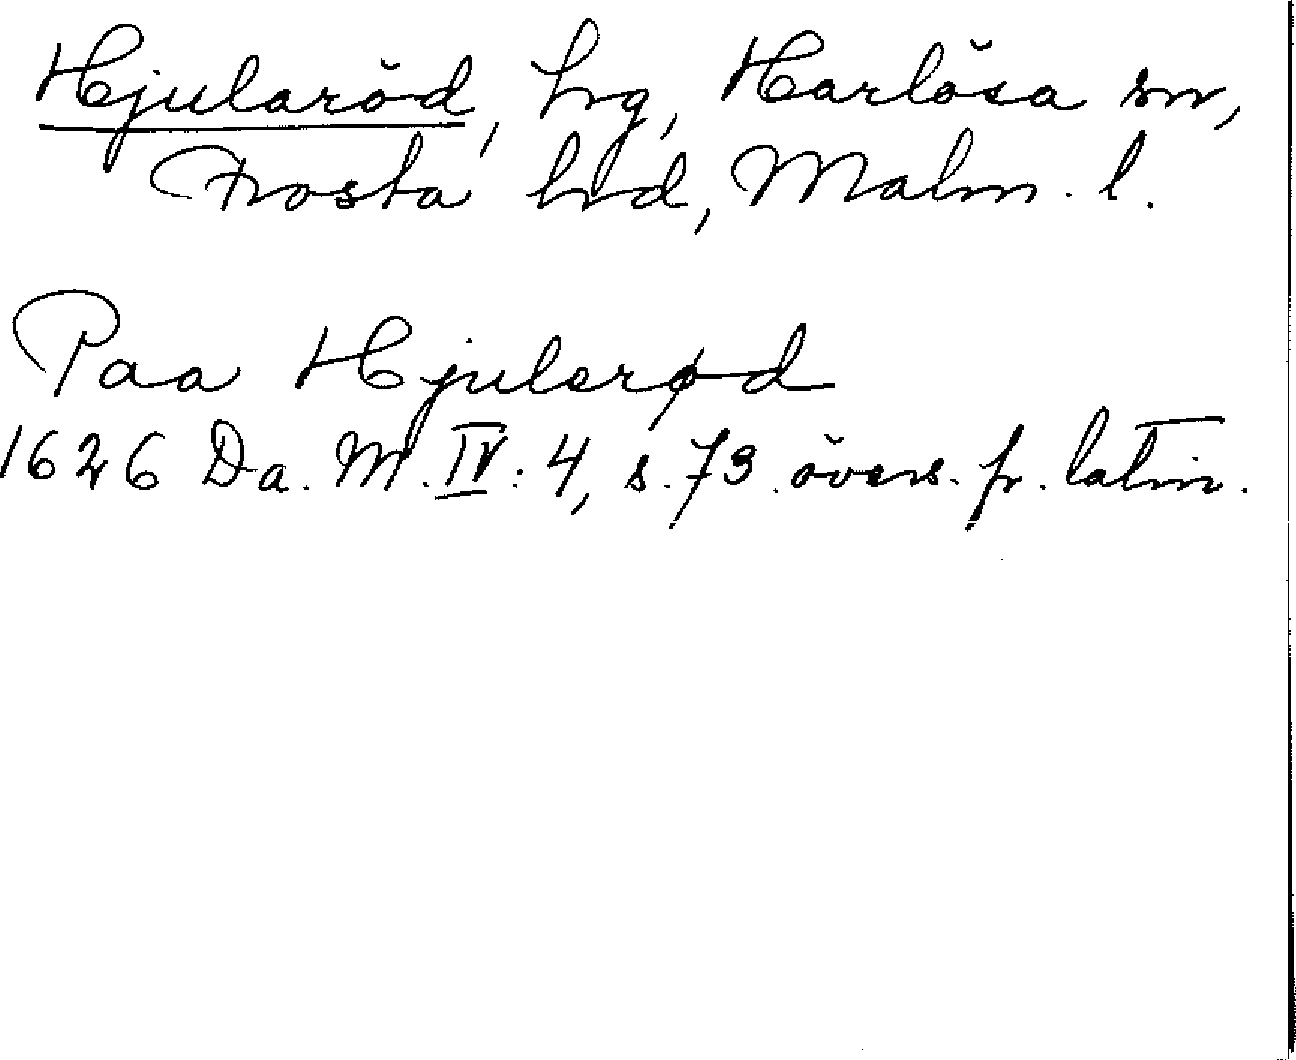 Hjularöd, hg, Harlösa sn,
Frosta hrd, Malm. l.
Paa Hjulerød
1626 Da. M. IV: 4, s. 73. övers. fr. latin.